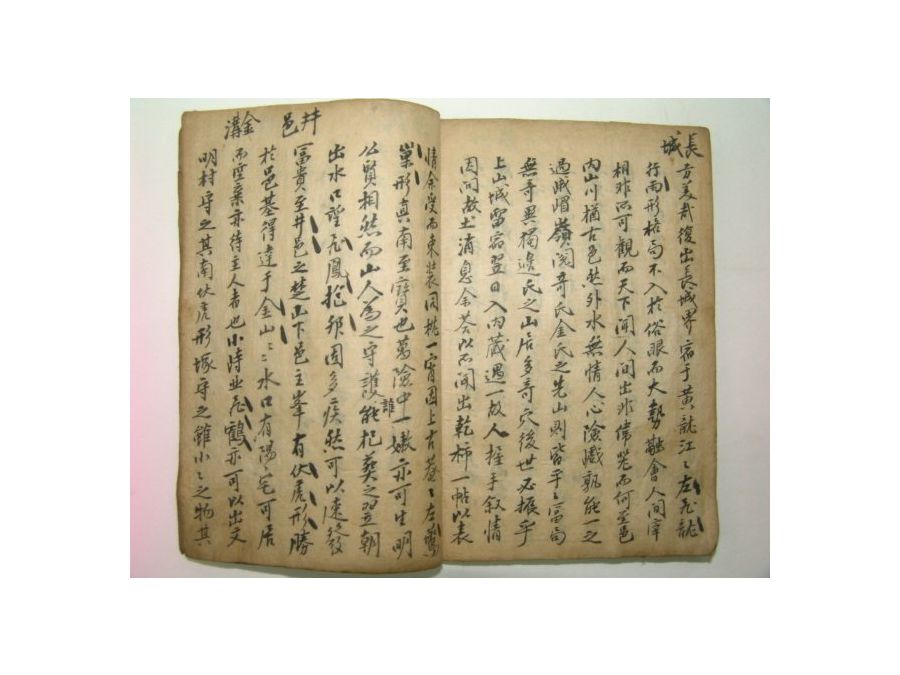 長城
方美哉復出長城界宿于黃龍江〻左飛龍
行雨形格局不入於俗眼而大勢融會人間宰
相非所可觀而天下聞人間出非偉器而何至邑
內山川猶古邑然外水無情人心險巇孰能一之
過峨嵋嶺閱奇氏金氏之先山則皆平〻富局
無奇異獨邊氏之山居多奇穴後世必振乎
上山城留宿翌日入內藏遇一故人握手敘情
因問故土消息余答以不聞出乾柿一帖以表
情余受而束裝同枕一宵因上古菴〻左鶯
巢形真南至寶也萬險中一嫩亦可生明
公賢相然而山人為之守護誰能把葬之翌朝
出水口望飛鳳抱卵因多疾然可以速發
井邑
富貴至井邑之楚山下邑主峯有伏虎形勝
於邑基得達于金山〻〻水口有陽宅可居
金溝
而雲棄亦待主人者也小時业飛鶴亦可以出文
明村守之其南伏虎形塚守之雖小〻之物其